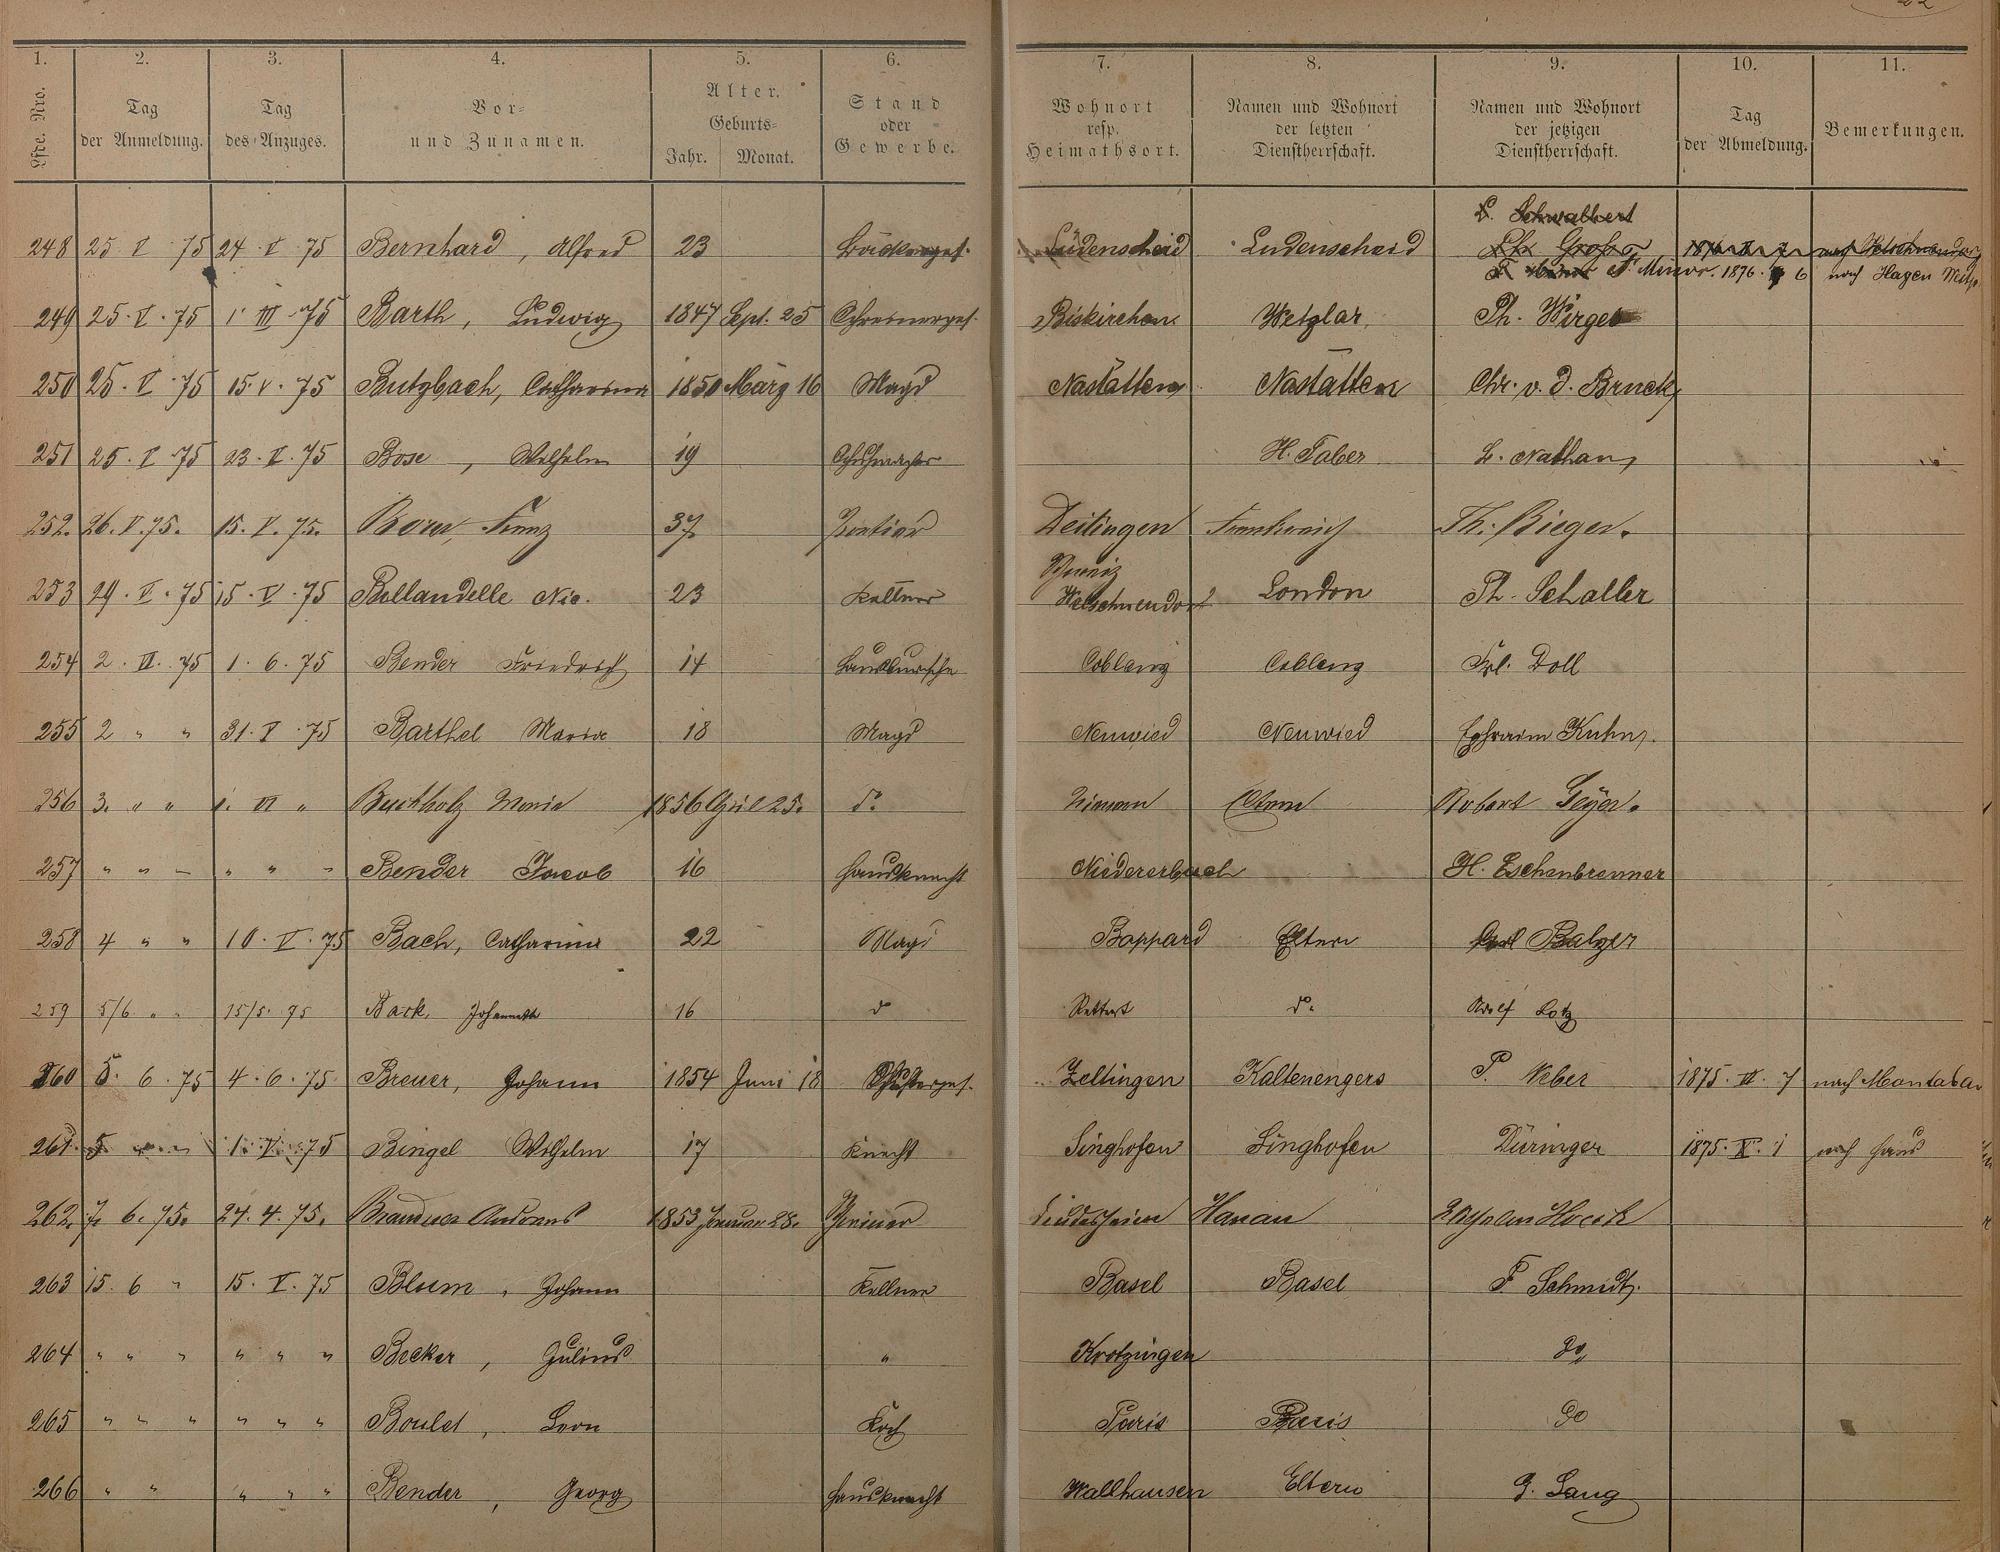 1. 2. 3. 4. 5. 6. 7. 8. 9. 10. 11.
Lfde. Nro. Tag der Anmeldung. Tag des Anzuges. Vor- und Zunamen. Alter. Geburts- Jahr. Monat. Stand oder Gewerbe. Wohnort resp. Heimathsort. Namen und Wohnort der letzten Dienstherrschaft. Namen und Wohnort der jetzigen Dienstherrschaft. Tag der Abmeldung. Bemerkungen.
Schwalbert
248 25 V 75 24 V 75 Bernhard, Alfred 23 Bäckerges. Lüdenscheid Ludenscheid
1876. 6 nach Hagen
249 25. V. 75 1 III 75 Barth, Ludwig 1847 Sept. 25 Schreinerges. Biskirchen Wetzlar Ph. Wirges
250 25. V. 75 15. V. 75 Butzbach, Catharina 1850 März 16 Magd Nastätten Nastätten Chr. v. d. Bruck
251 25. V 75 23. V. 75 Bose, Wilhelm 19 Schuhmacher H. Faber L. Nathan
252. 26. V. 75. 15. V. 75. Franz 37 Portier Deitingen Frankreich Th. Rieger.
Schweiz
253 29. V. 75 15. V. 75 Bellandelle Nic. 23 Kellner Welschnendorf London Ph. Schaller
254 2. VI. 75 1. 6. 75 Bender Friedrich 14 Hausbursche Coblenz Coblenz Frl. Doll
255 2 " " 31. V. 75 Barthel Maria 18 Magd Neuwied Neuwied Ephraim Kuhn.
256 3. " " 1. VI " Buchholz Maria 1856 April 25. do Eltern Robert Geyer.
257 " " " " " " Bender Jacob 16 Hausknecht Niedererbach H. Eschenbrenner
258 4 " " 10. V. 75 Bach, Catharina 22 Magd Boppard Eltern Balzer
259 5/6 " " 15/5. 75 Back, Johannette 16 do Rettert do Adolf Lotz
260 5. 6. 75 4. 6. 75. Breuer, Johann 1854 Juni 18 Zeltingen Kaltenengers P. Weber 1875. VI. 7 nach Montabaur
261. 5 1. V. 75 Bingel Wilhelm 17 Knecht Singhofen Singhofen Düringer 1875. X. 1 nach Haus
262. 7. 6. 75. 24. 4. 75. Brandner Andreas 1853 Januar 28. Schreiner Hanau Wilhelm
263 15. 6 " 15. V. 75 Blum, Johann Kellner Basel Basel F. Schmidt.
264 " " " " " " Becker, Julius " Krotzingen do
265 " " " " " " Boulet, Leon Koch Paris Paris do
266 " " " " " Bender, Georg Hausknecht Wallhausen Eltern G. Lang